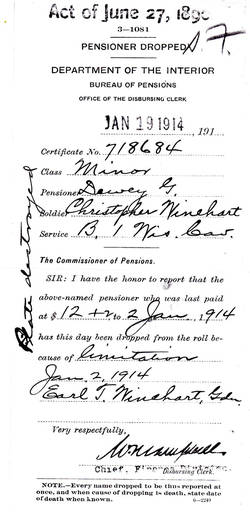 Act of June 27, 1890
3—1081
PENSIONER DROPPED
DEPARTMENT OF THE INTERIOR
BUREAU OF PENSIONS
OFFICE OF THE DISBURSING CLERK
JAN 19 1914, 191
Certificate No. 718684
Class Minor
Pensioner Dewey G.
Soldier Christopher Winehart
Service B, 1 Wis. Cav.
The Commissioner of Pensions.
SIR: I have the honor to report that the
above-named pensioner who was last paid
at $ 12 + 2 to 2 Jan, 1914
has this day been dropped from the roll be-
cause of limitation
Jan. 2, 1914
Earl T. Winehart, Gdn.
Very respectfully,
Chief, Finance Division
Disbursing Clerk.
NOTE.—Every name dropped to be thus reported at
once, and when cause of dropping is death, state date
of death when known.
6—2249
Plate destroyed